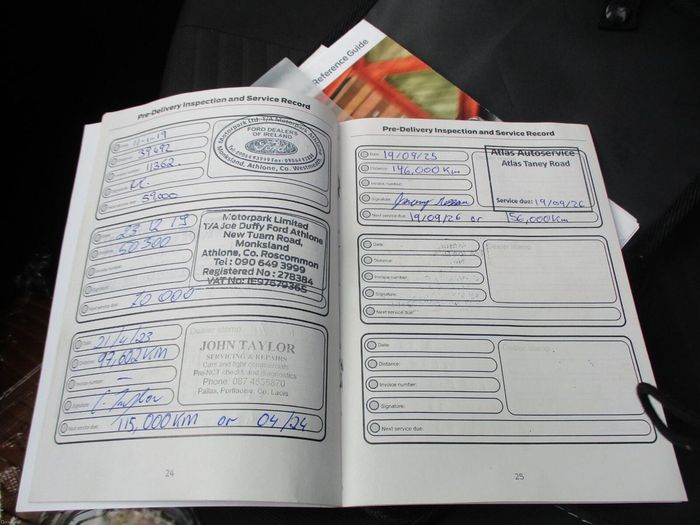 Reference Guide
Pre-Delivery Inspection and Service Record
11-1-19
39692
11362
59000
Motorpark Ltd. T/A Motorpark Athlone
FORD DEALERS
OF IRELAND
Ford
Monksland, Athlone, Co. Westmeath
23 12 19
50300
Next service due:
70 000
Motorpark Limited
T/A Joe Duffy Ford Athlone
New Tuam Road,
Monksland
Athlone, Co. Roscommon
Tel : 090 649 3999
Registered No : 278384
VAT No: IE9767936S
Date: 21/4/23
97,602 KM
Invoice number: -
Signature: Taylor
Next service due: 115,000 KM or 04/24
Dealer stamp
JOHN TAYLOR
SERVICING & REPAIRS
Cars and light commercials
Pre-NCT checks and diagnostics
Phone: 087 4655870
Pallas, Portlaoise, Co. Laois
24
Pre-Delivery Inspection and Service Record
Date: 19/09/25
Distance: 146,000 Km
Invoice number:
Signature:
Next service due: 19/09/26 or 156,000 Km
Atlas Autoservice
Atlas Taney Road
Service due: 19/09/26
Date:
Distance:
Invoice number:
Signature:
Next service due:
Dealer stamp
Date:
Distance:
Invoice number:
Signature:
Next service due:
Dealer stamp
25